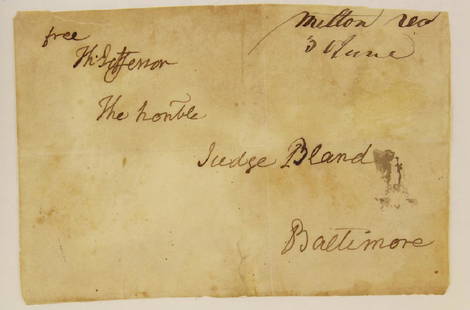 free
Th: Jefferson
Milton Va
3 June
The honble
Judge Bland
Baltimore